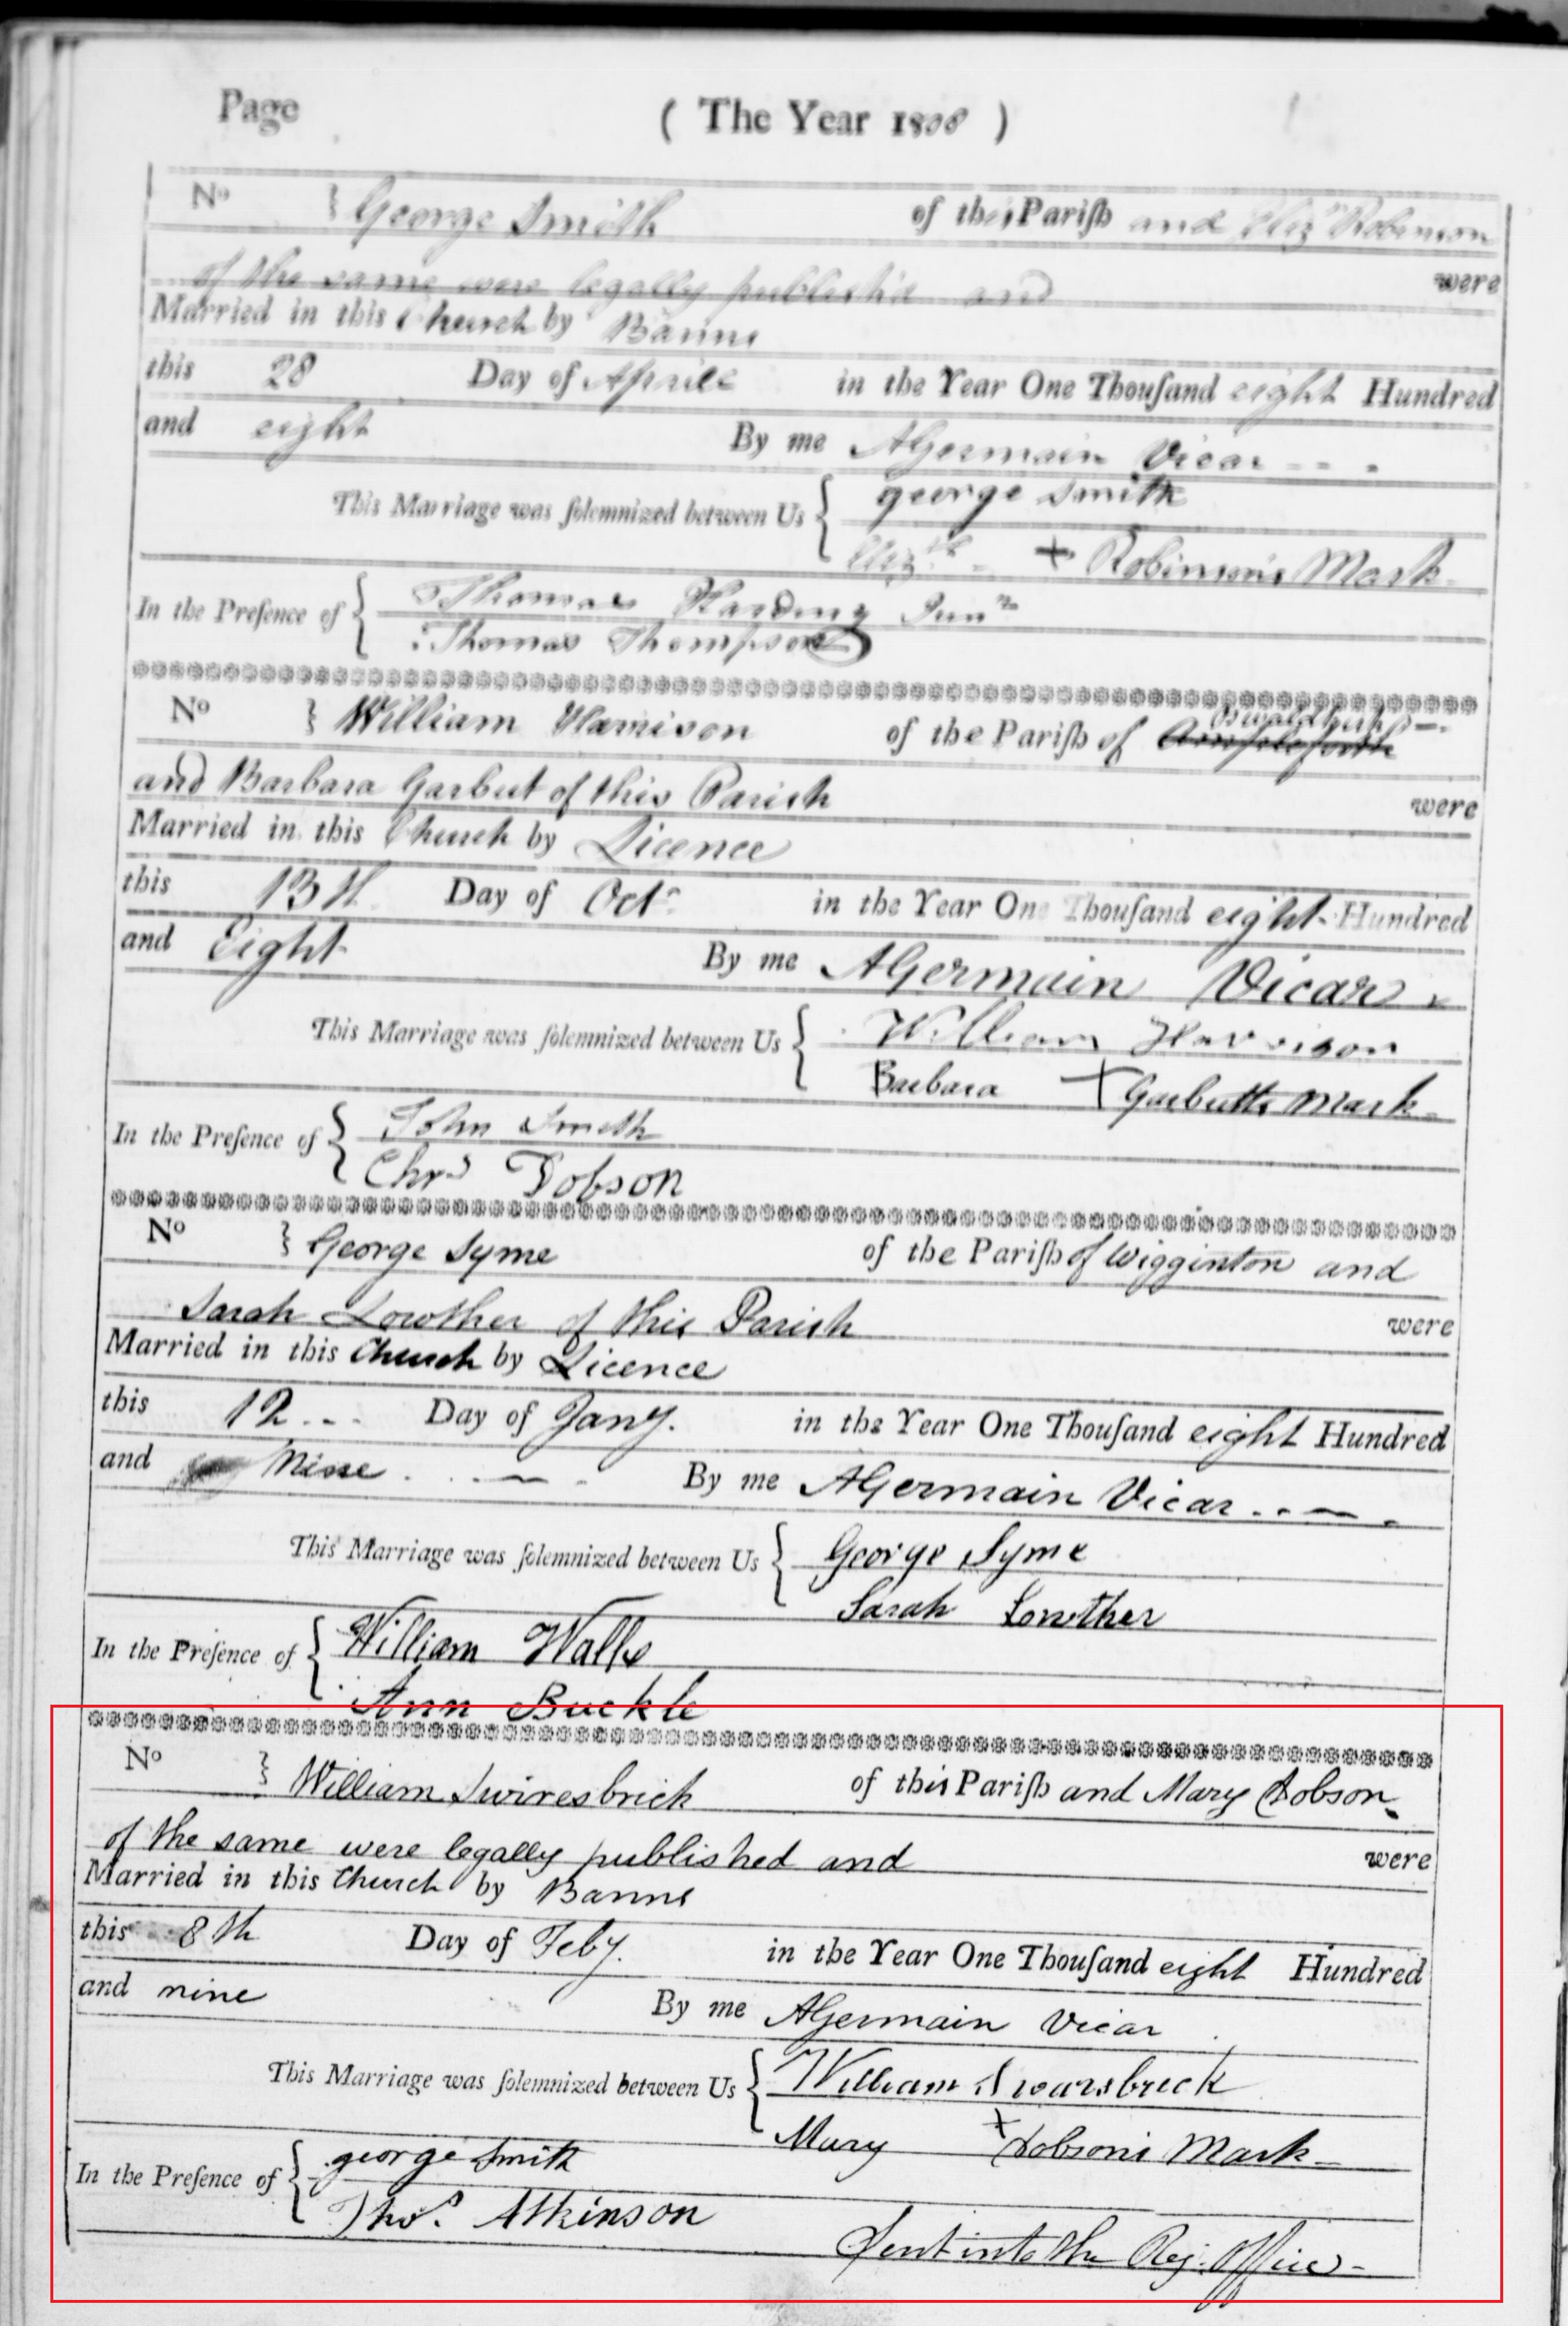 Page ( The Year 1808 )
No } George Smith of this Parish and Elizth Robinson
of the same were legally publish'd and were
Married in this Church by Banns
this 28 Day of Aprill in the Year One Thousand eight Hundred
and eight By me AGermain Vicar
This Marriage was solemnized between Us { george Smith
Elizth + Robinson's Mark
In the Presence of { Thomas Harding Junr
Thomas Thompson
No } William Harrison of the Parish of Oswaldkirk
and Barbara Garbut of this Parish were
Married in this Church by Licence
this 13th Day of Octr in the Year One Thousand eight Hundred
and Eight By me AGermain Vicar
This Marriage was solemnized between Us { William Harrison
Barbara + Garbutts Mark
In the Presence of { John Smith
Chrs Dobson
No } George Syme of the Parish of Wigginton and
Sarah Lowther of this Parish were
Married in this Church by Licence
this 12 Day of Jany. in the Year One Thousand eight Hundred
and Nine By me AGermain Vicar
This Marriage was solemnized between Us { George Syme
Sarah Lowther
In the Presence of { William Walls
Ann Buckle
No } William Swiresbrick of this Parish and Mary Dobson
of the same were legally published and were
Married in this Church by Banns
this 8th Day of Feby. in the Year One Thousand eight Hundred
and nine By me AGermain Vicar
This Marriage was solemnized between Us { William Swarsbrick
Mary + Dobsons Mark
In the Presence of { george Smith
Thos. Atkinson
Sent into the Reg. Office